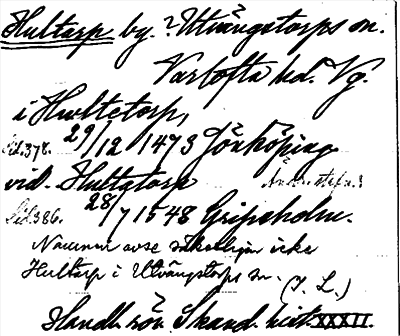 Hultarp by. ? Utvängstorps sn.
Vartofta hd. Vg.
i Hwltetorp,
Sid. 378. 29/12 1473 Jönköping
vid Hultatorp
Sid 386. 28/7 1548 Gripsholm.
Namnen avse säkerligen icke
Hultarp i Utvängstorps sn. (I. L.)
Handl. rör. Skand. hist. XXXII.